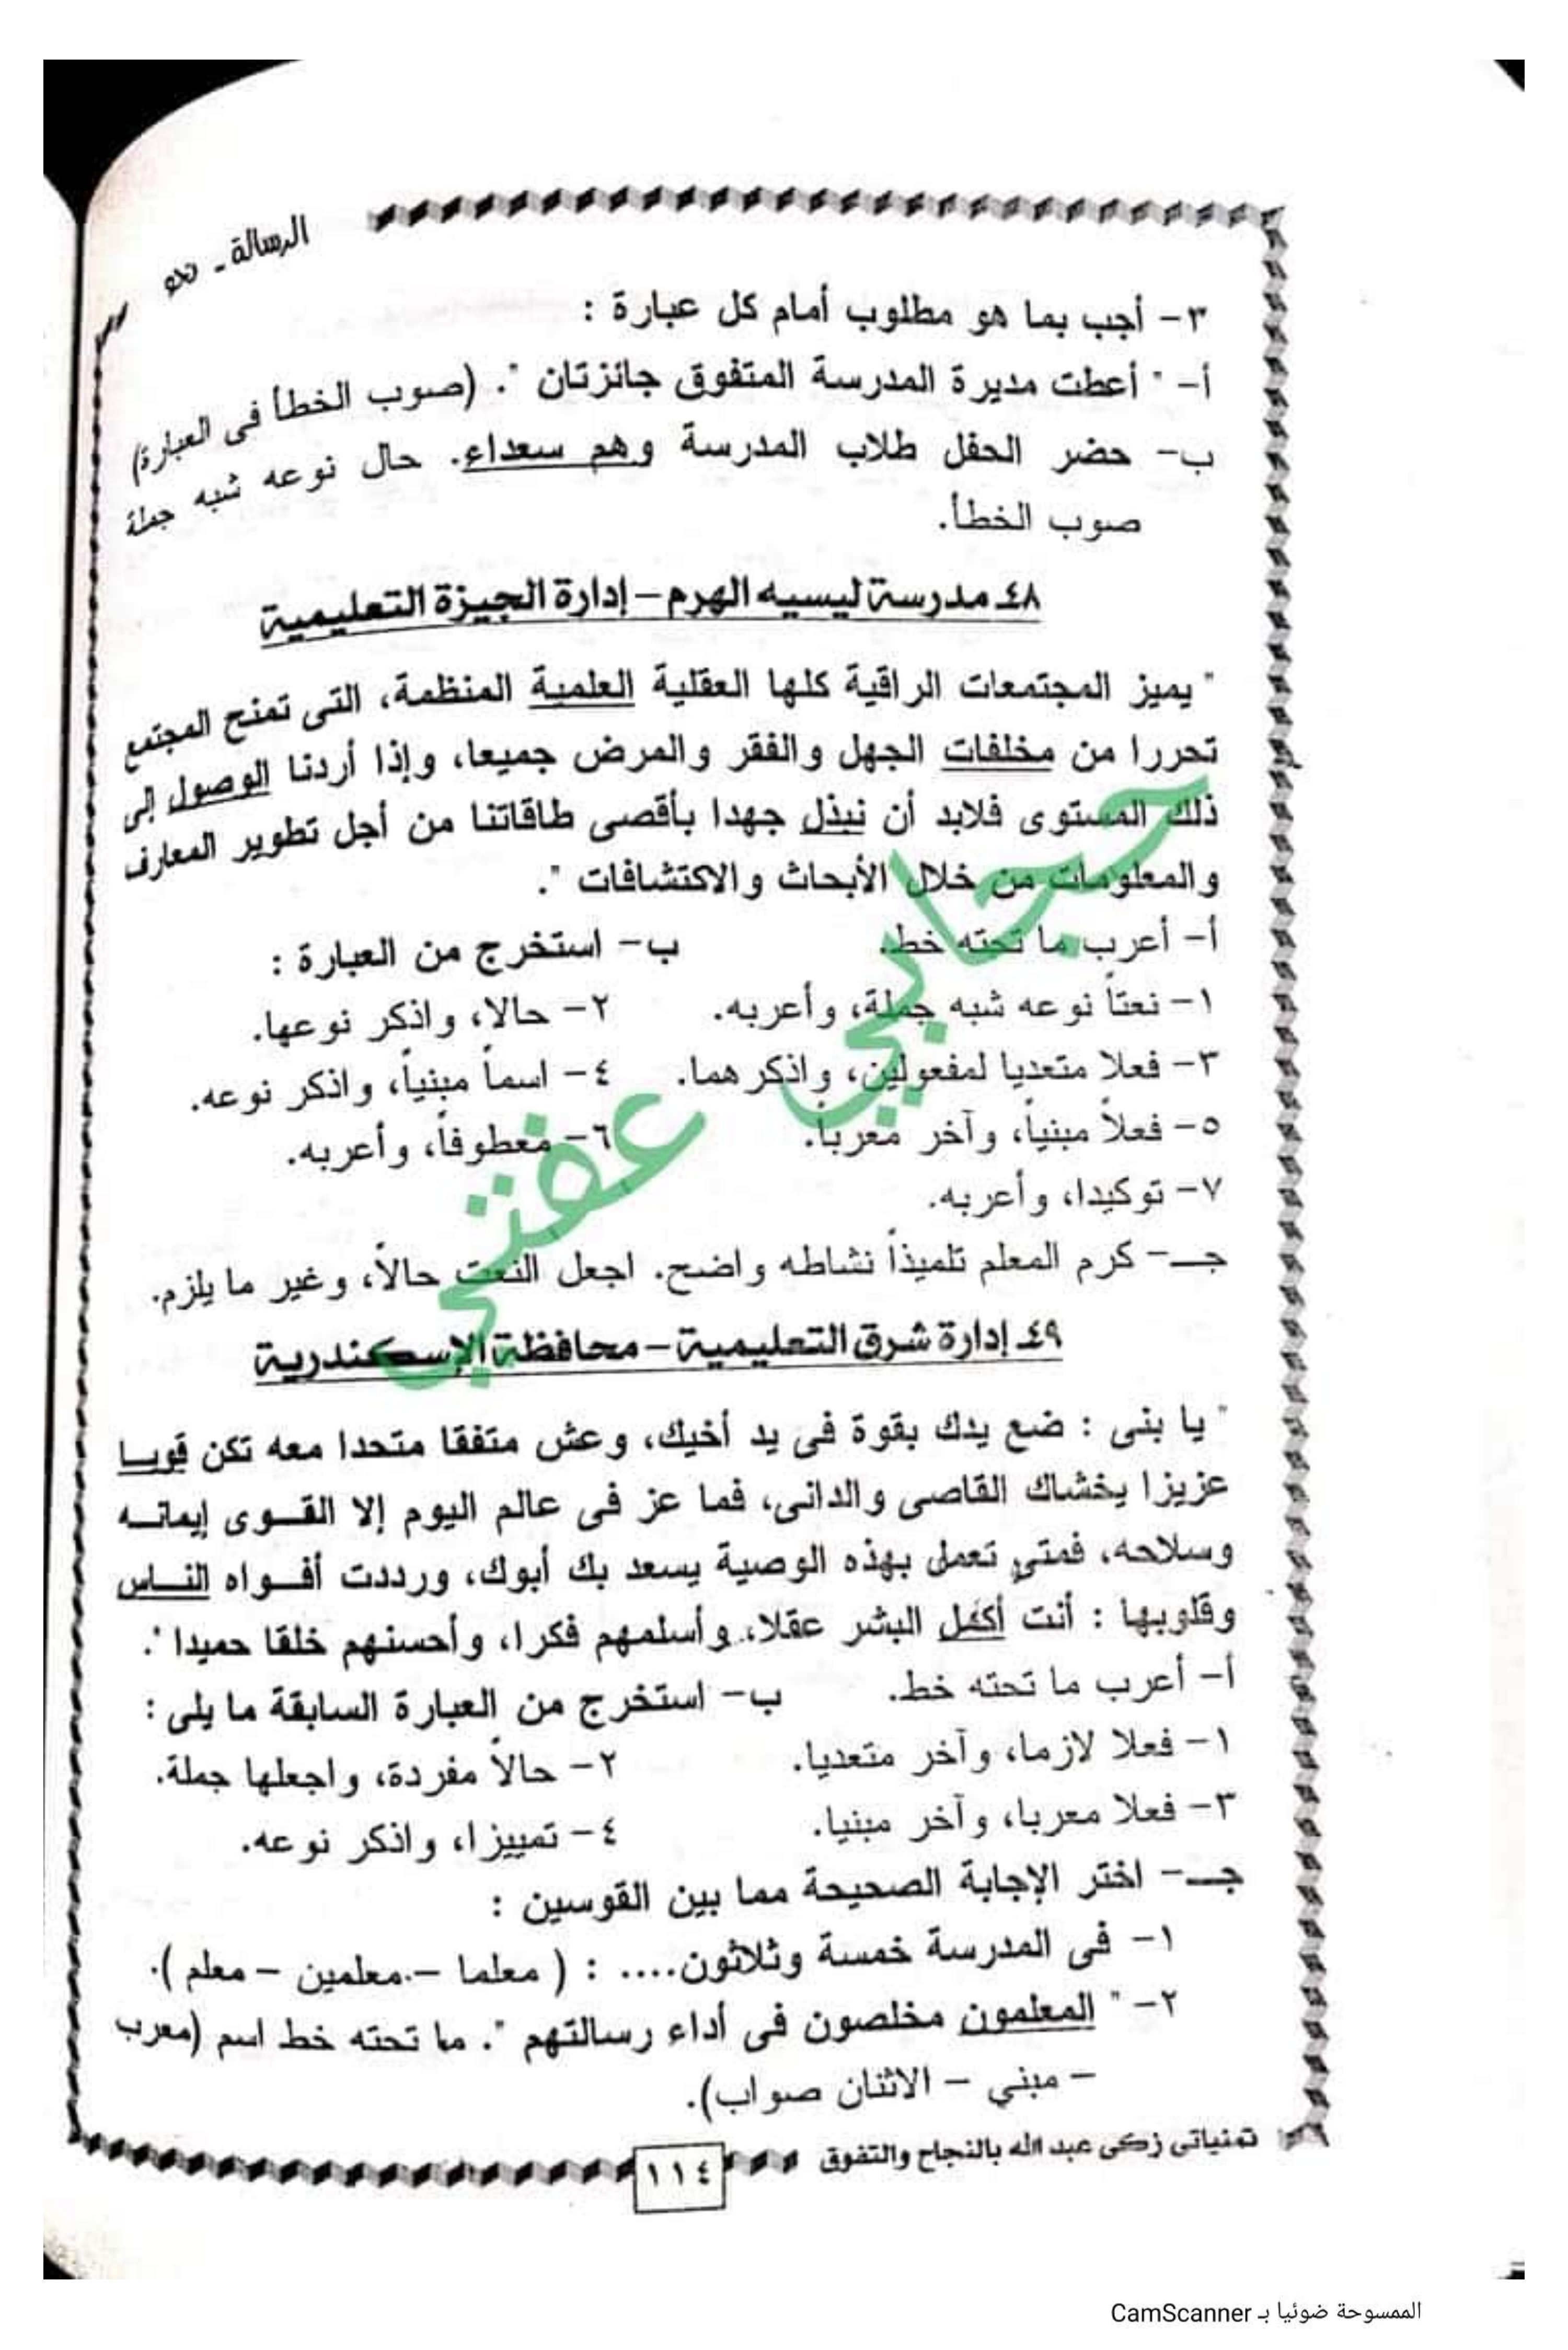 الرسالة -
٣- أجب بما هو مطلوب أمام كل عبارة :
أ- " أعطت مديرة المدرسة المتفوق جائزتان ". (صوب الخطأ فى العبارة)
ب- حضر الحفل طلاب المدرسة وهم سعداء. حال نوعه شبه جملة
صوب الخطأ.
٤٨ـ مدرسة ليسيه الهرم – إدارة الجيزة التعليمية
" يميز المجتمعات الراقية كلها العقلية العلمية المنظمة، التى تمنح المجتمع
تحررا من مخلفات الجهل والفقر والمرض جميعا، وإذا أردنا الوصول إلى
ذلك المستوى فلابد أن نبذل جهدا بأقصى طاقاتنا من أجل تطوير المعارف
والمعلومات من خلال الأبحاث والاكتشافات ".
أ- أعرب ما تحته خط. ب- استخرج من العبارة :
١- نعتاً نوعه شبه جملة، وأعربه. ٢- حالا، واذكر نوعها.
٣- فعلا متعديا لمفعولين، واذكرهما. ٤- اسماً مبنياً، واذكر نوعه.
٥- فعلاً مبنياً، وآخر معرباً. ٦- معطوفاً، وأعربه.
٧- توكيدا، وأعربه.
جـ- كرم المعلم تلميذاً نشاطه واضح. اجعل النعت حالاً، وغير ما يلزم.
حجابي عفتي
٤٩ـ إدارة شرق التعليمية – محافظة الإسكندرية
" يا بنى : ضع يدك بقوة فى يد أخيك، وعش متفقا متحدا معه تكن قويا
عزيزا يخشاك القاصى والدانى، فما عز فى عالم اليوم إلا القوى إيمانه
وسلاحه، فمتى تعمل بهذه الوصية يسعد بك أبوك، ورددت أفواه الناس
وقلوبها : أنت أكمل البشر عقلا، وأسلمهم فكرا، وأحسنهم خلقا حميدا ".
أ- أعرب ما تحته خط. ب- استخرج من العبارة السابقة ما يلى :
١- فعلا لازما، وآخر متعديا. ٢- حالاً مفردة، واجعلها جملة.
٣- فعلا معربا، وآخر مبنيا. ٤- تمييزا، واذكر نوعه.
جـ- اختر الإجابة الصحيحة مما بين القوسين :
١- فى المدرسة خمسة وثلاثون.... : ( معلما – معلمين – معلم ).
٢- " المعلمون مخلصون فى أداء رسالتهم ". ما تحته خط اسم (معرب
– مبني – الاثنان صواب).
تمنياتى زكى عبد الله بالنجاح والتفوق
١١٤
الممسوحة ضوئيا بـ CamScanner